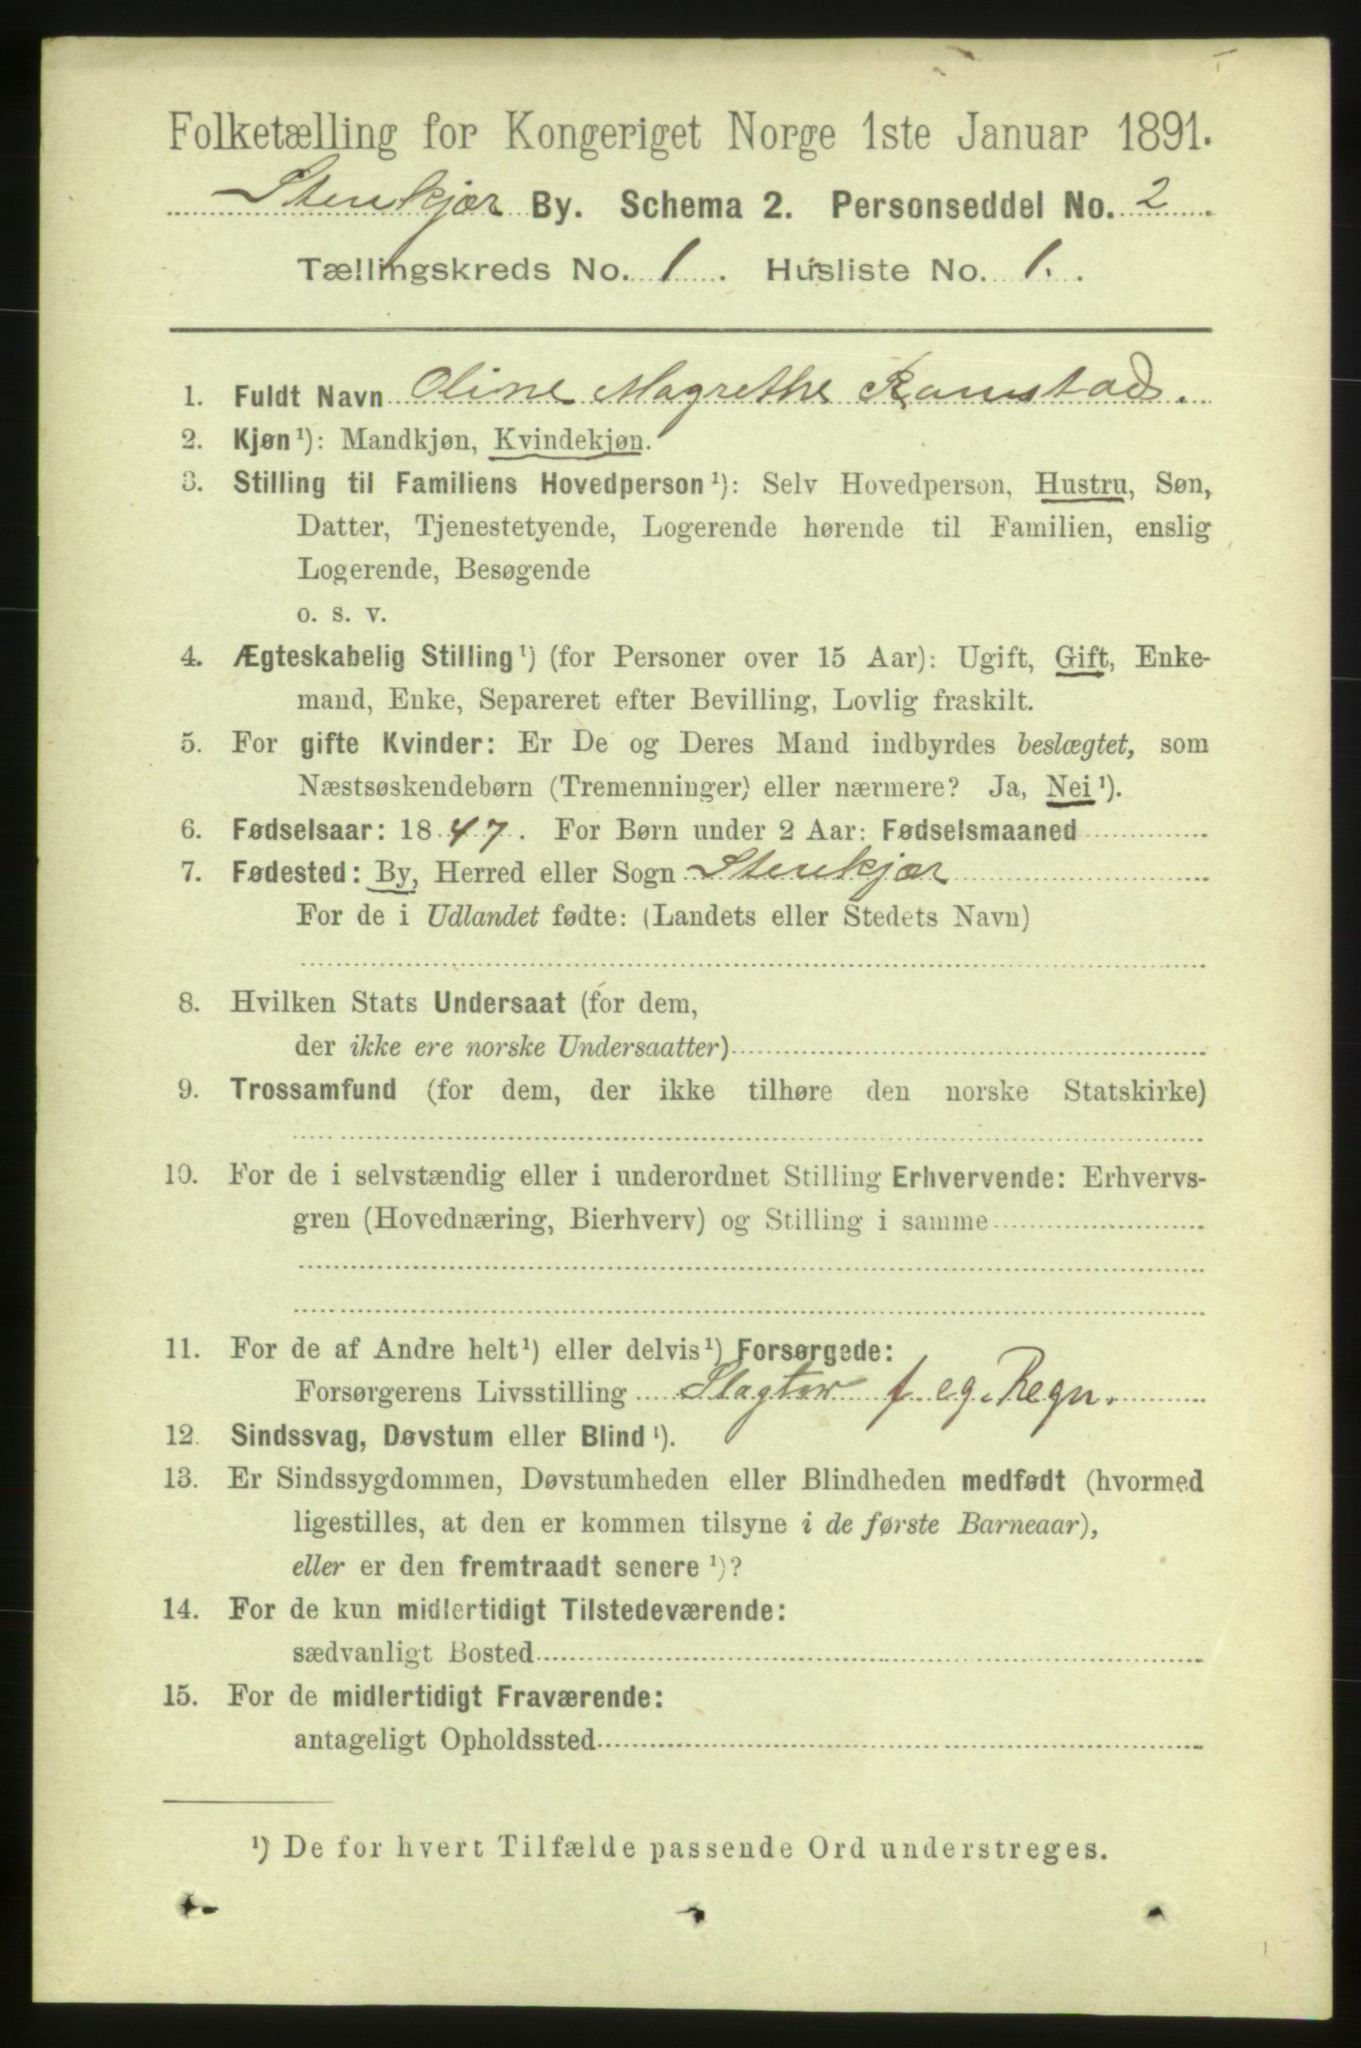 Folketælling for Kongeriget Norge 1ste Januar 1891.
Stenkjær By. Schema 2. Personseddel No. 2
Tællingskreds No. 1. Husliste No. 1.
1. Fuldt Navn Oline Magrethe Ramstad.
2. Kjøn¹): Mandkjøn, Kvindekjøn.
3. Stilling til Familiens Hovedperson¹): Selv Hovedperson, Hustru, Søn,
Datter, Tjenestetyende, Logerende hørende til Familien, enslig
Logerende, Besøgende
o. s. v.
4. Ægteskabelig Stilling¹) (for Personer over 15 Aar): Ugift, Gift, Enke-
mand, Enke, Separeret efter Bevilling, Lovlig fraskilt.
5. For gifte Kvinder: Er De og Deres Mand indbyrdes beslægtet, som
Næstsøskendebørn (Tremenninger) eller nærmere? Ja, Nei¹).
6. Fødselsaar: 1847. For Børn under 2 Aar: Fødselsmaaned
7. Fødested: By, Herred eller Sogn Stenkjær
For de i Udlandet fødte: (Landets eller Stedets Navn)
8. Hvilken Stats Undersaat (for dem,
der ikke ere norske Undersaatter)
9. Trossamfund (for dem, der ikke tilhøre den norske Statskirke)
10. For de i selvstændig eller i underordnet Stilling Erhvervende: Erhvervs-
gren (Hovednæring, Bierhverv) og Stilling i samme
11. For de af Andre helt¹) eller delvis¹) Forsørgede:
Forsørgerens Livsstilling Slagter f. eg. Regn.
12. Sindssvag, Døvstum eller Blind¹).
13. Er Sindssygdommen, Døvstumheden eller Blindheden medfødt (hvormed
ligestilles, at den er kommen tilsyne i de første Barneaar),
eller er den fremtraadt senere¹)?
14. For de kun midlertidigt Tilstedeværende:
sædvanligt Bosted
15. For de midlertidigt Fraværende:
antageligt Opholdssted
¹) De for hvert Tilfælde passende Ord understreges.